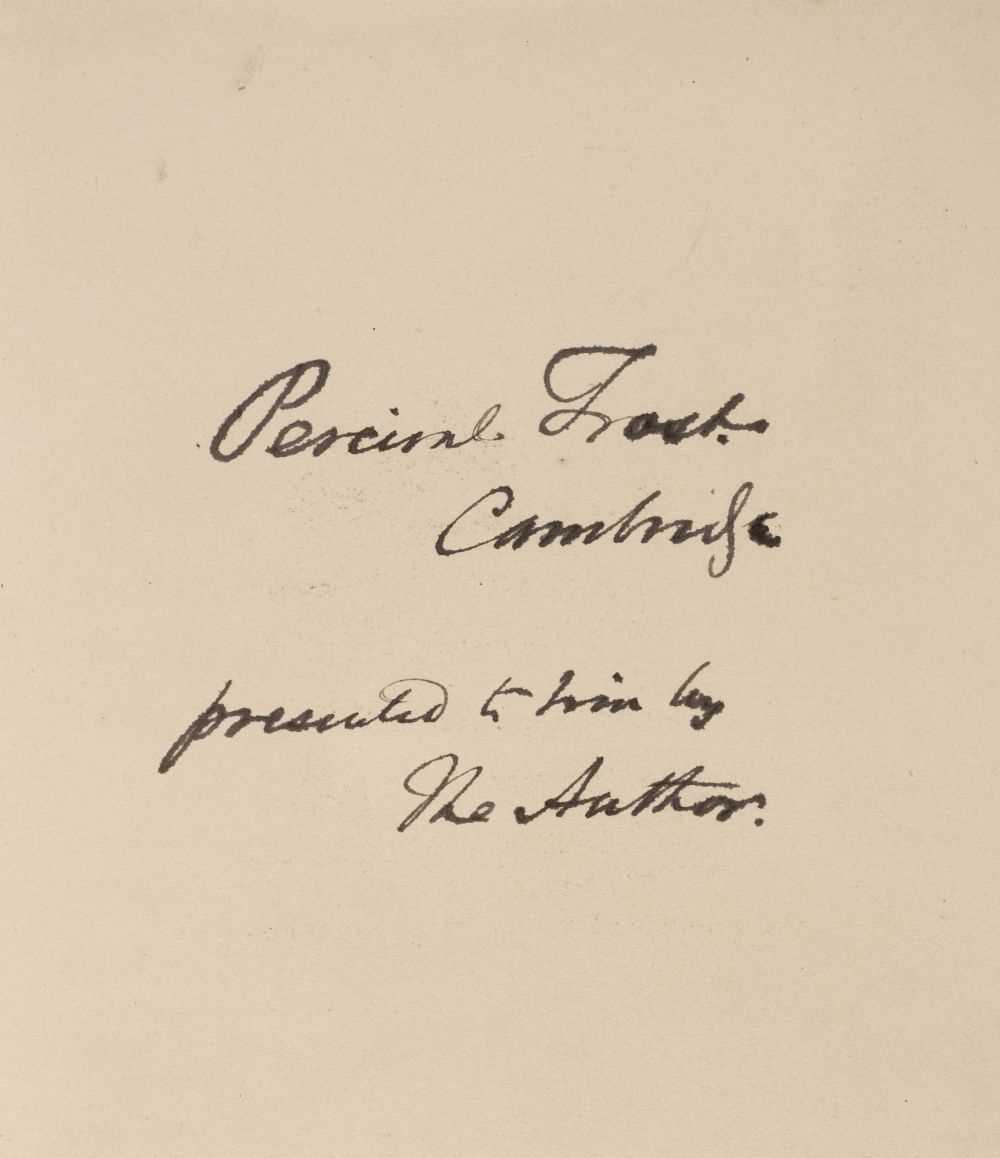 Percival Frost.
Cambridge
presented to him by
The Author.